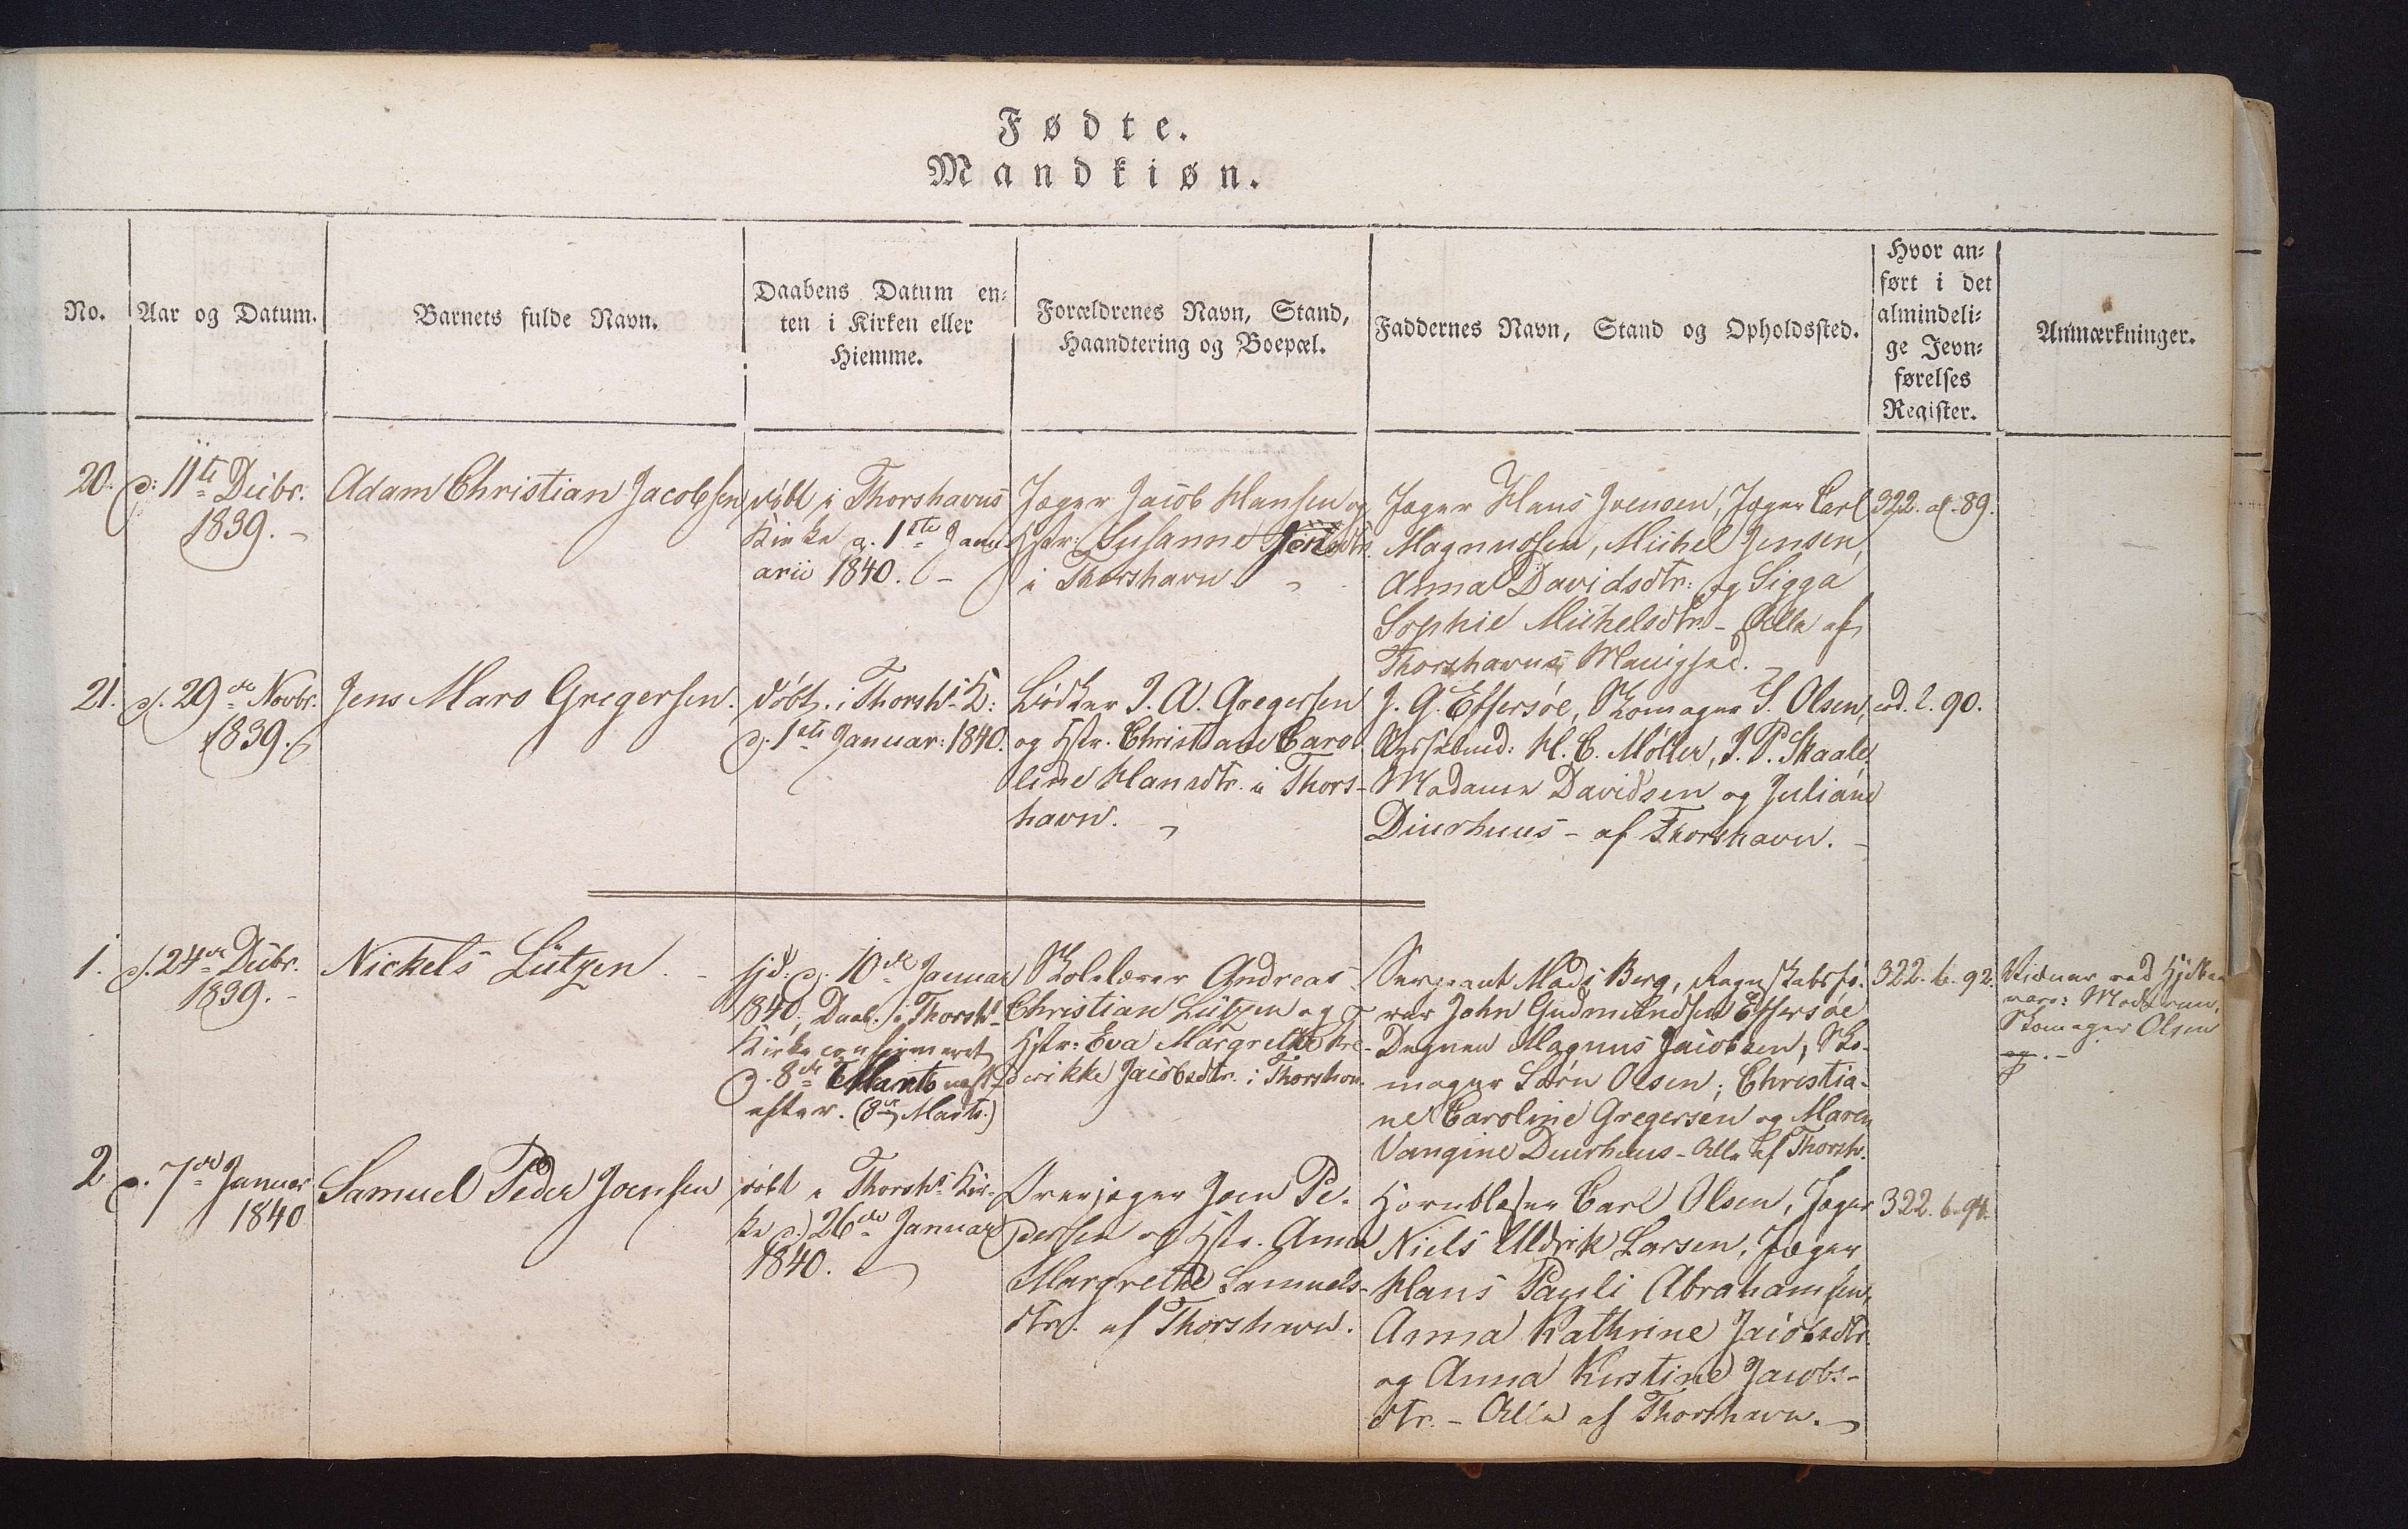 Fødte.
Mandkiøn.
No.
Aar og Datum.
Barnets fulde Navn.
Daabens Datum en-
ten i Kirken eller
Hiemme.
Forældrenes Navn, Stand,
Haandtering og Boepæl.
Faddernes Navn, Stand og Opholdssted.
Hvor an-
ført i det
almindeli-
ge Jevn-
førelses
Register.
Anmærkninger.
20.
d: 11te Decbr.
1839.
Adam Christian Jacobsen
døbt i Thorshavns
Kirke d. 1ste Janu-
arii 1840. -
Jæger Jacob Hansen og
Hstr: Susanne
i Thorshavn
Jæger Hans Joensen, Jæger Carl
Magnussen, Michel Jensen,
Anna Davidsdtr: og Sigga
Sophie Michelsdtr. - Alle af
Thorshavns Menighed.
322. a. 89.
21.
d. 29de Novbr.
1839.
Jens Maro Gregersen.
døbt i Thorsh. K:
d. 1ste Januar: 1840.
Bødker J. A. Gregersen
og Hstr. Christiane Caro-
line Hansdtr. i Thors-
havn.
J. G. Effersøe, Skomager S. Olsen,
H. C. Møller, J. P. Skaale,
Madame Davidsen og Juliane
Diurhuus - af Thorshavn. -
ad. l. 90.
1.
d. 24de Decbr.
1839. -
Nickels Lützen. -
hjd: d. 10de Januar
1840, Daab. i Thorsh.
Kirke confirmeret
d. 8de Marts
efter. (8de Marts.)
Skolelærer Andreas
Christian Lützen og
Hstr: Eva Margrethe Fre-
derikke Jacobsdtr. i Thorshavn.
Sergeant Mads Berg, Regnskabsfø-
rer John Gudmundsen Effersøe
Degnen Magnus Jacobsen, Sko-
mager Sørn Olsen; Christia-
ne Caroline Gregersen og Maren
Vangine Diurhuus - Alle af Thorsh.
322. b. 92.
Vidner ved Hjdbn
vare: Moderen,
Skomager Olsen
og . -
2
d. 7de Januar
1840
Samuel Peder Joensen
døbt i Thorsh. Kir-
ke d. 26de Januar
1840.
Overjæger Joen Pe-
dersen og Hstr. Anna
Margrethe Samuels-
dtr. af Thorshavn.
Hornblæser Carl Olsen, Jæger
Niels Uldrik Larsen, Jæger
Hans Pauli Abrahamsen,
Anna Kathrine Jacobsdtr.
og Anna Kirstine Jacobs-
dtr. - Alle af Thorshavn.
322. b. 94.